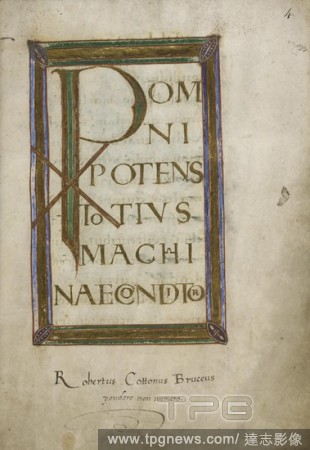 4
☧ OM
NI
POTENS
TOTIVS
MACHI
NAE CONDITOR
Robertus Cottonus Bruceus
pondere non numero
TPG
www.tpgnews.com / 達志影像